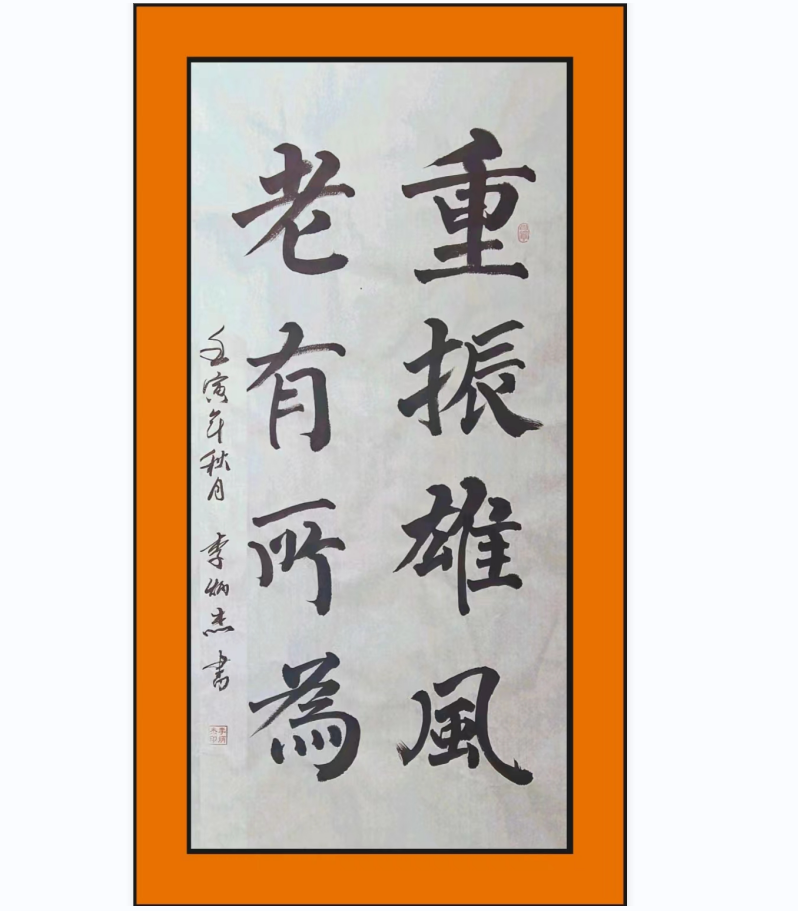 重振雄風
老有所為
壬寅年秋月 李炳杰書